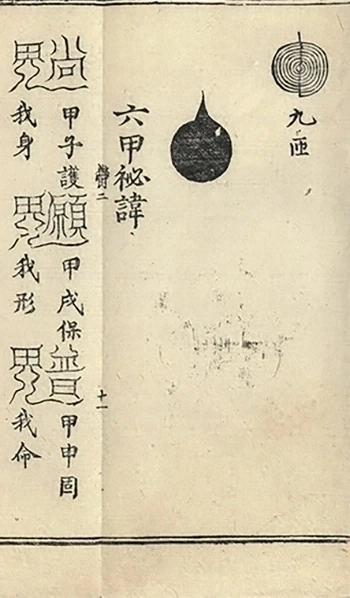 九匝
六甲祕諱
二
十一
甲子護
我身
甲戌保
我形
甲申固
我命